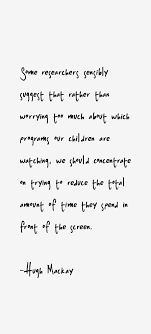 Some researchers sensibly
suggest that rather than
worrying too much about which
programs our children are
watching, we should concentrate
on trying to reduce the total
amount of time they spend in
front of the screen.
-Hugh Mackay